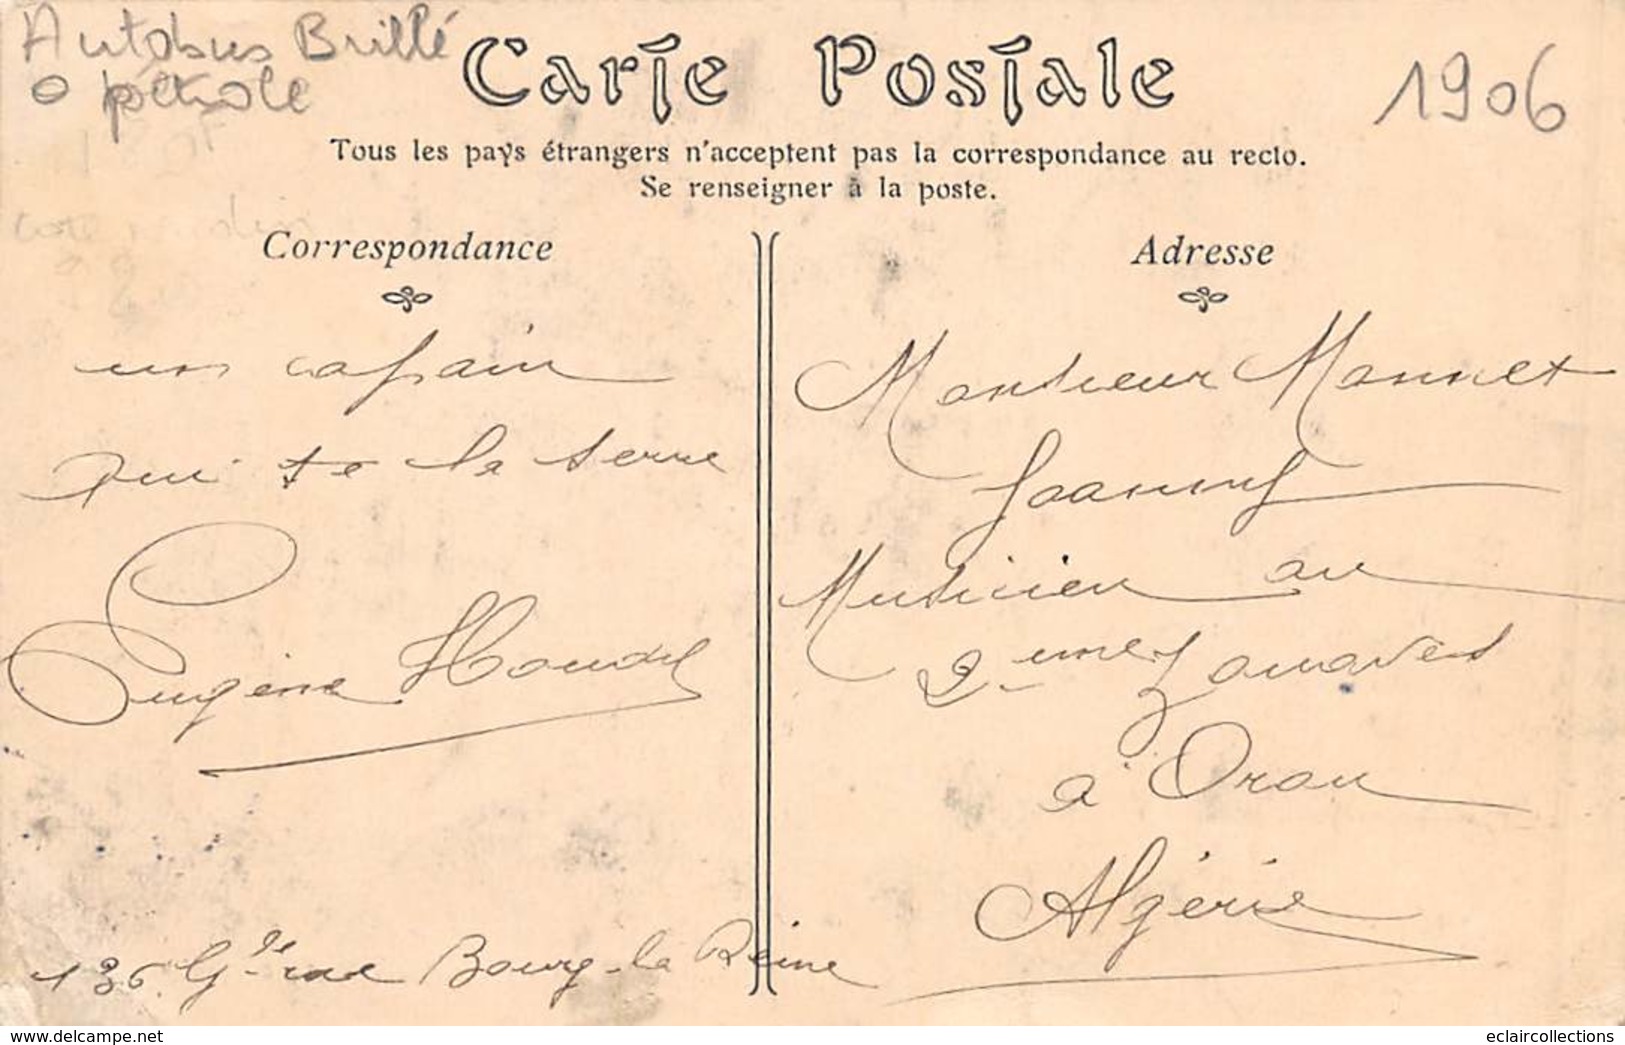 Autobus Brillé
o pétrole
1906
Carte Postale
Tous les pays étrangers n'acceptent pas la correspondance au recto.
Se renseigner à la poste.
Correspondance
un copain
qui te la serre
Eugène
136 Gde rue Bourg-la Reine
Adresse
Monsieur Monnet
Joanny
Musicien au
2eme Zouaves
à Oran
Algérie
www.delcampe.net
eclaircollections